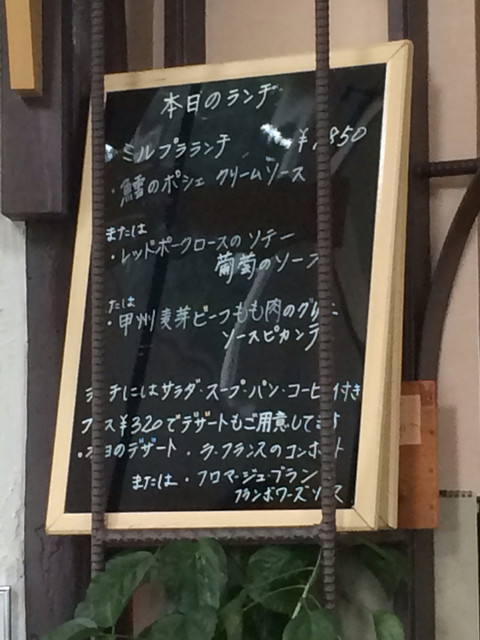 本日のランチ
・ミルプラランチ ¥ 850
・鱈のポシェ クリームソース
または
・レッドポークロースのソテー
葡萄のソース
たは
・甲州麦芽ビーフもも肉のグリ
ソースピカンテ
チにはサラダ・スープ・パン・コーヒー付き
プラス¥320でデザートもご用意してます
・本日のデザート ・ラ・フランスのコンポート
または ・フロマージュ・ブラン
フランボワーズソース